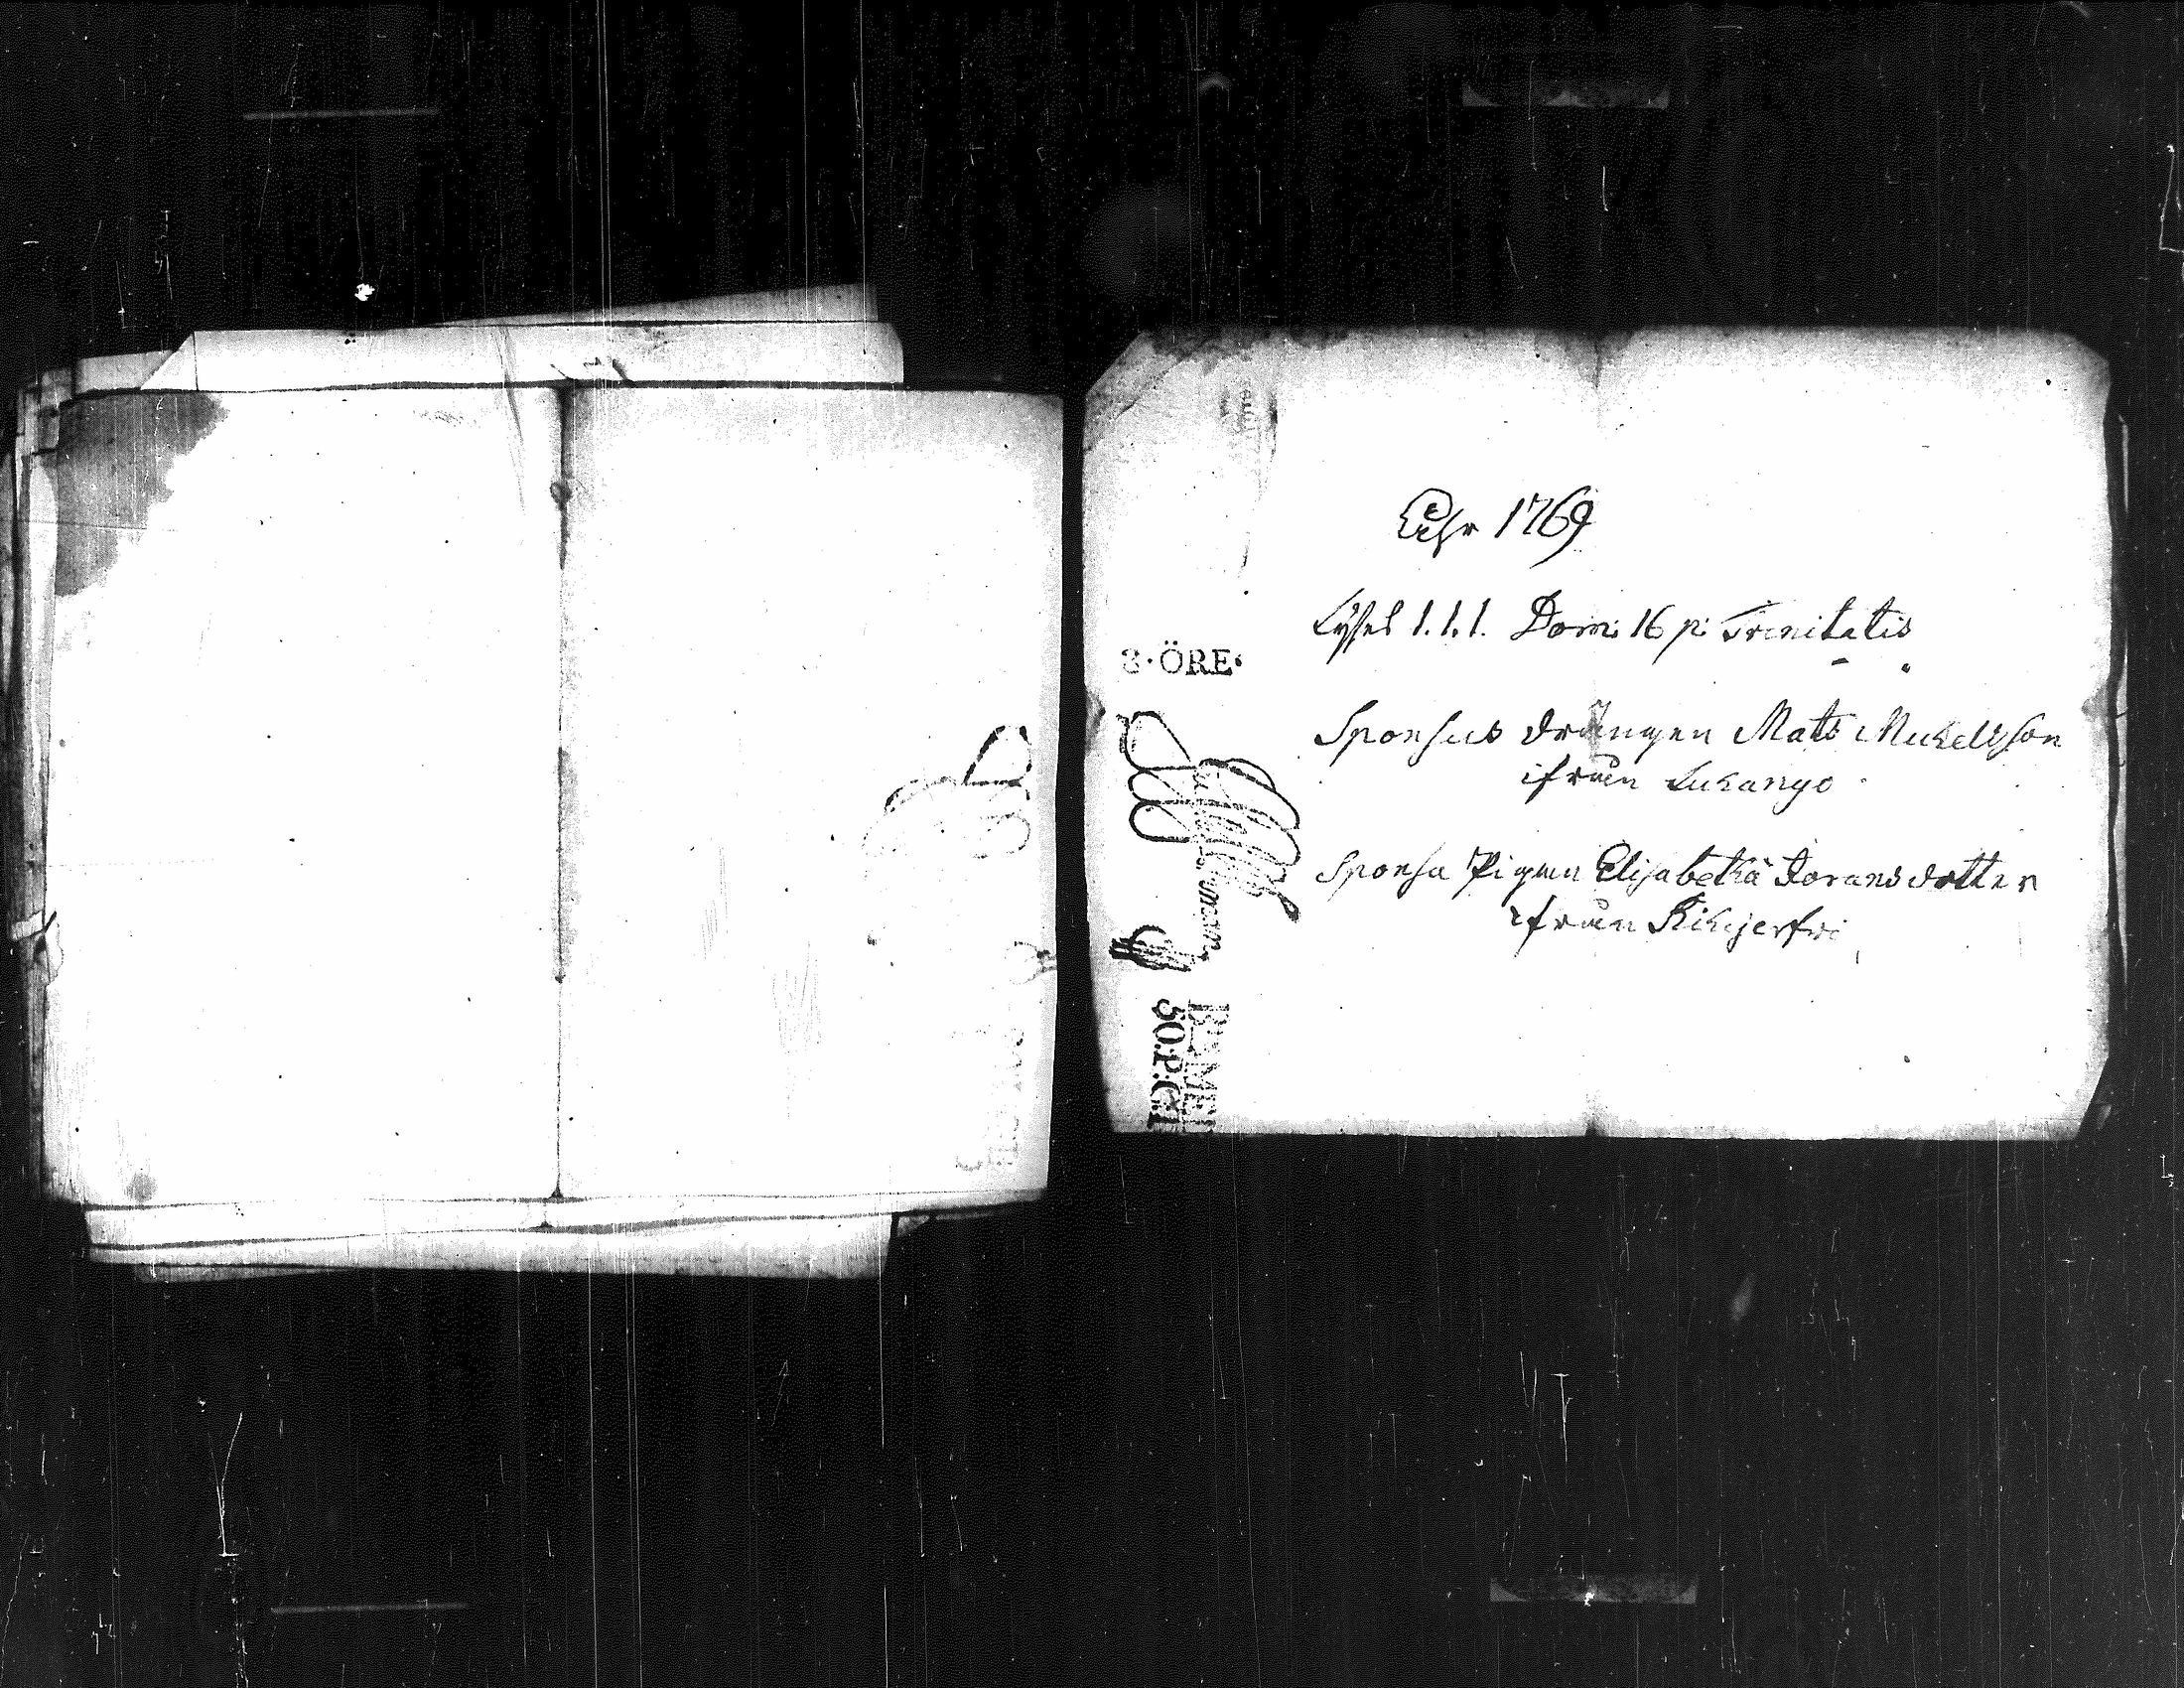 Åhr 1769
Lyses 1.1.1. Dom: 16 p: Trinitatis
8·ÖRE·
Sponsus drängen Mats Mickelsson
ifrån Lukango
Sponsa Pigan Elisabetha Joransdotter
ifrån Kihjerfwi